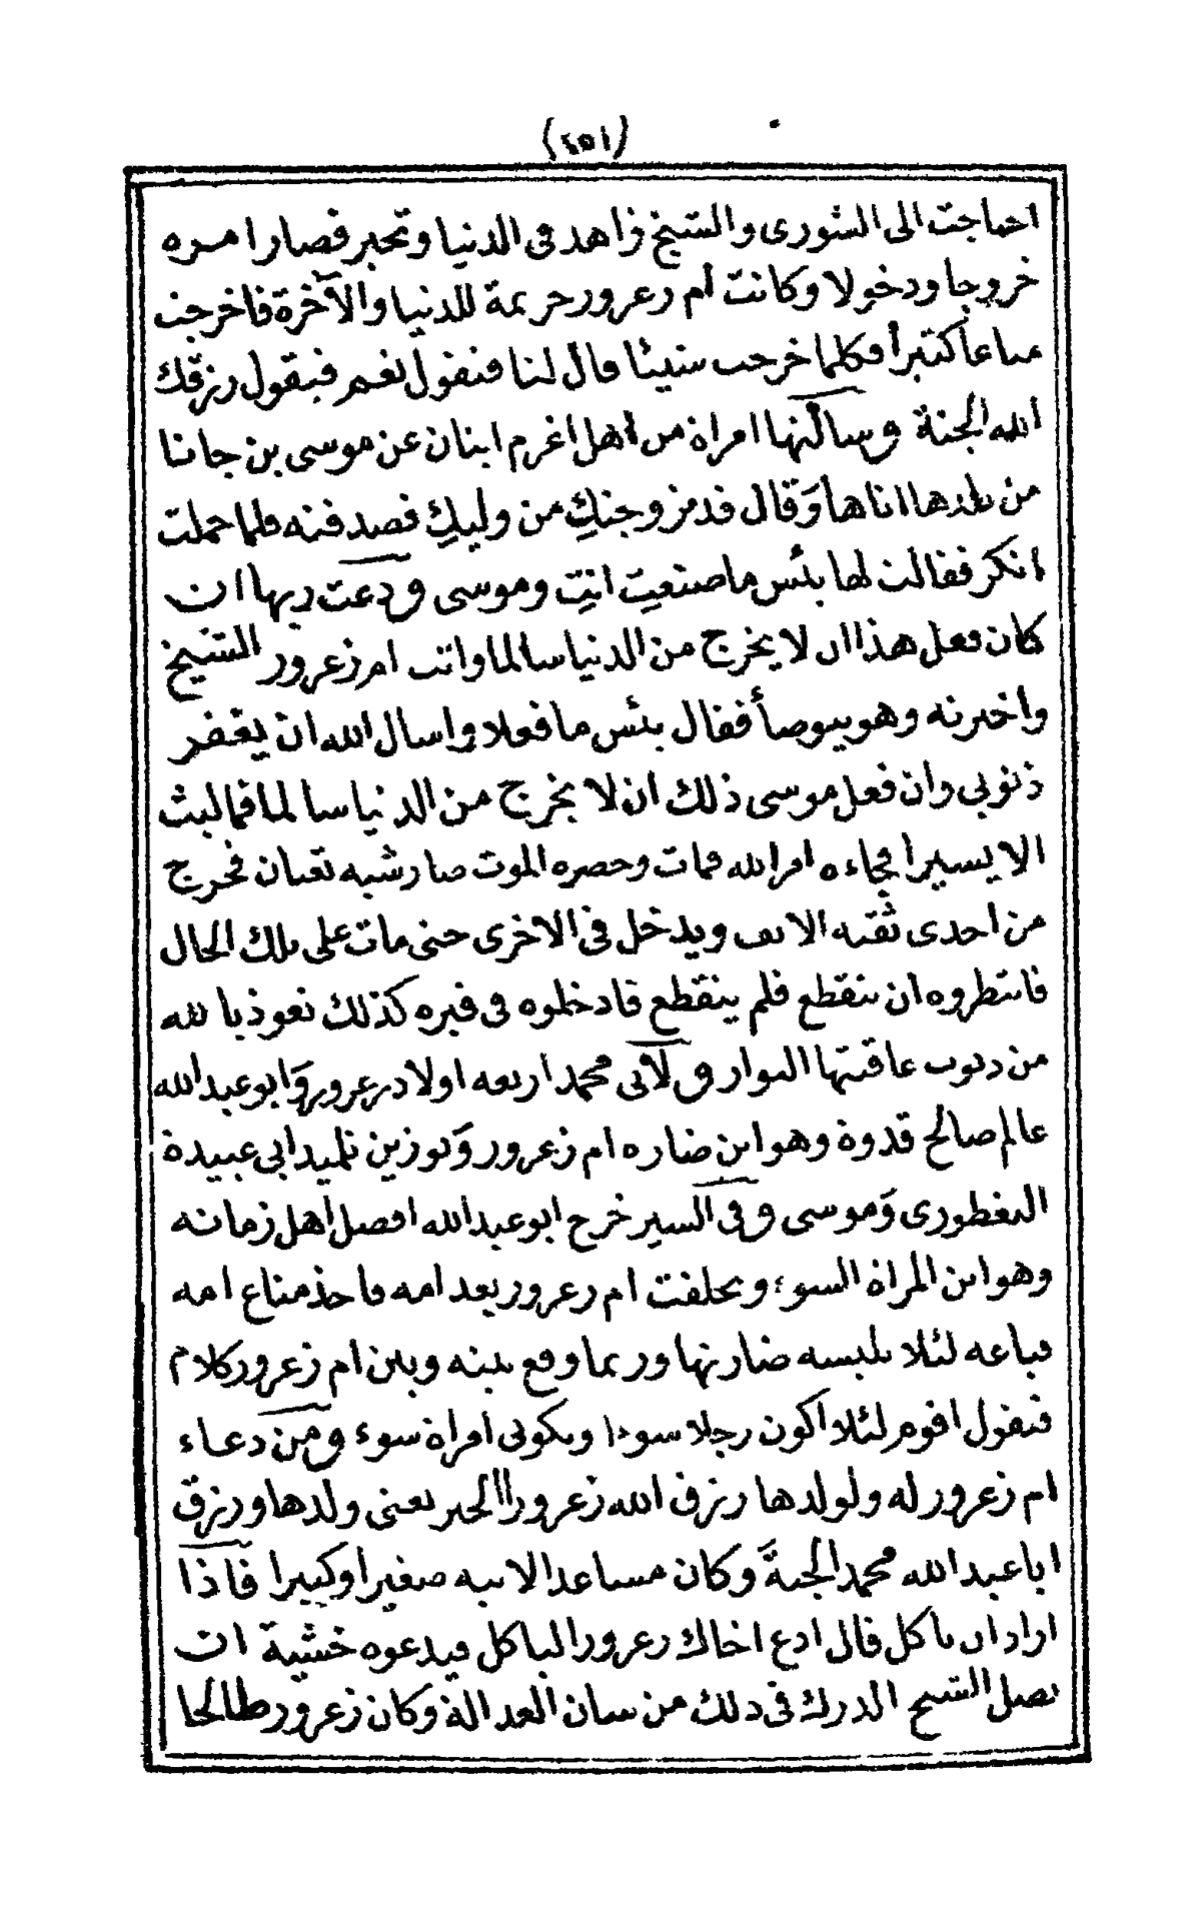 (٤٥١)
احتاجت الى الشورى والشيخ زاهد في الدنيا وتحير فصار امره
خروجا ودخولا وكانت ام زعرور حريمة للدنيا والآخرة فاخرجت
متاعا كثيرا فكلما خرجت شيئا قال لنا فنقول نعم فيقول رزقك
الله الجنة وسألتها امراة من اهل اغرم اينان عن موسى بن جانا
من بلدها اتاها وقال قد مزوجتك من وليك فصدقته فلما حملت
انكر فقالت لها بئس ما صنعت انت وموسى ودعت ربها ان
كان فعل هذا ان لا يخرج من الدنيا سالما واتت ام زعرور الشيخ
واخبرته وهو يتوضأ فقال بئس ما فعلا واسال الله ان يغفر
ذنوبي وان فعل موسى ذلك ان لا يخرج من الدنيا سالما فما لبث
الا يسيرا فجاءه امر الله فمات وحضره الموت صار شبه ثعبان فخرج
من احدى ثقبه الانف ويدخل في الاخرى حتى مات على تلك الحال
فانتظروه ان ينقطع فلم ينقطع فادخلوه في قبره كذلك نعوذ بالله
من ذنوب عاقبتها البوار ولأبي محمد اربعه اولاد زعرور وابو عبد الله
عالم صالح قدوة وهو ابن ضاره ام زعرور وتوزين تلميد ابي عبيدة
التغطورى وموسى وفي السير خرج ابو عبد الله افضل اهل زمانه
وهو ابن المراة السوء وتخلفت ام زعرور بعد امه فاخذ متاع امه
فباعه لئلا تلبسه ضارتها وربما وقع بينه وبين ام زعرور كلام
فتقول اقوم لئلا اكون رجلا سوءا وتكوني امراة سوء ومن دعاء
ام زعرور له ولولدها رزق الله زعرورا الخير يعني ولدها ورزق
ابا عبد الله محمد الجنة وكان مساعدا لابيه صغيرا وكبيرا فاذا
اراد ان ياكل قال ادع اخاك زعرورا لياكل فيدعوه خشية ان
يصل الشيخ الدرك في ذلك من شان العدالة وكان زعرور طالحا